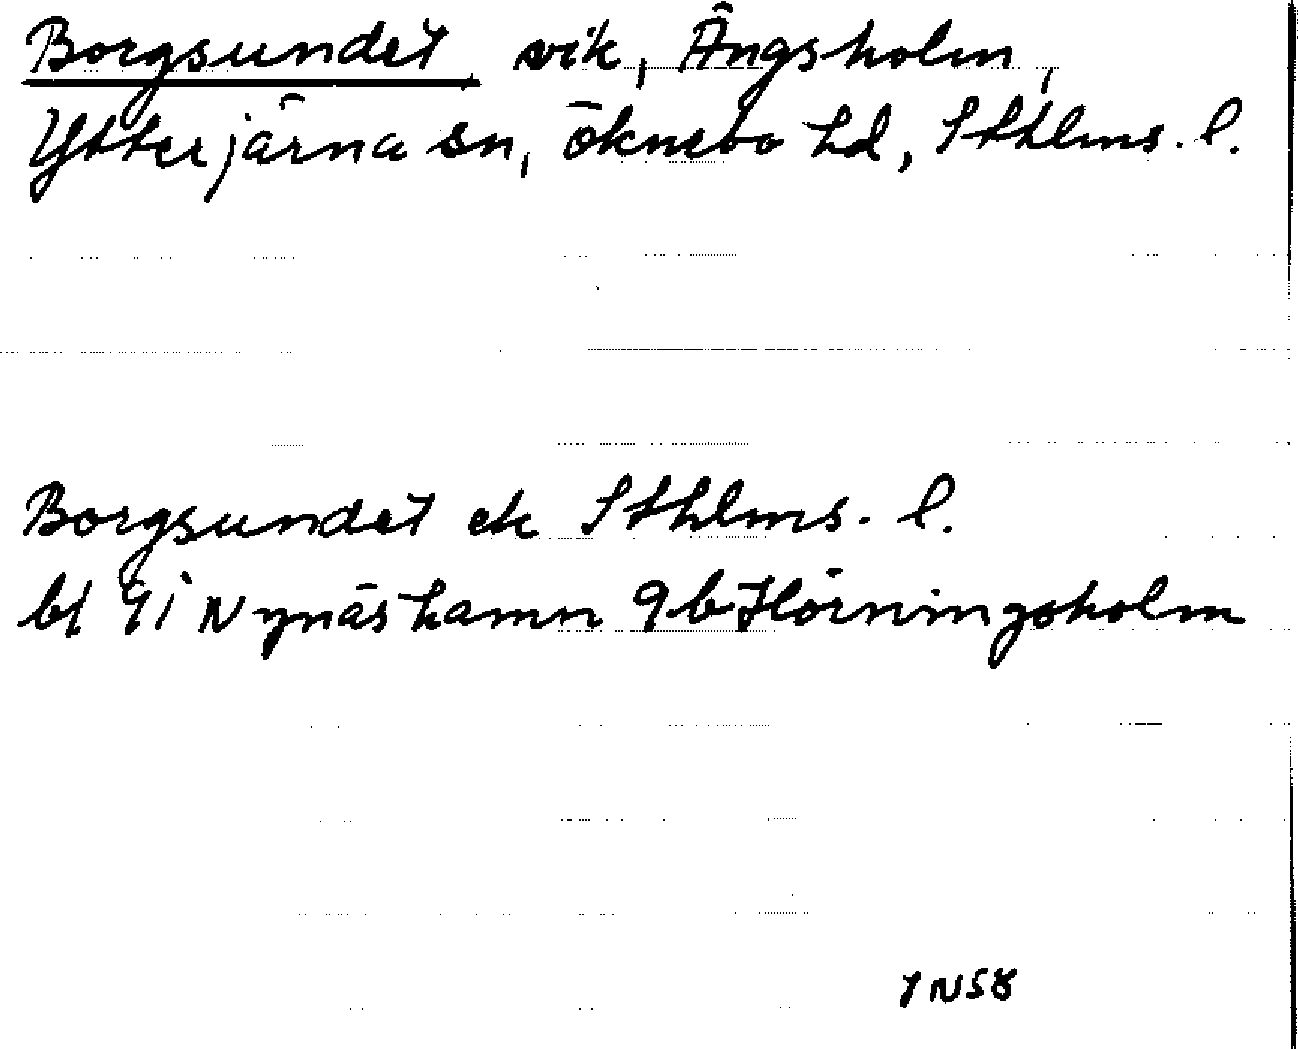 Borgsundet, vik, Ängsholm,
Ytterjärna sn, Öknebo hd, Sthlms. l.
Borgsundet ek Sthlms. l.
bl 9i Nynäshamn 9b Hörningsholm
YN58